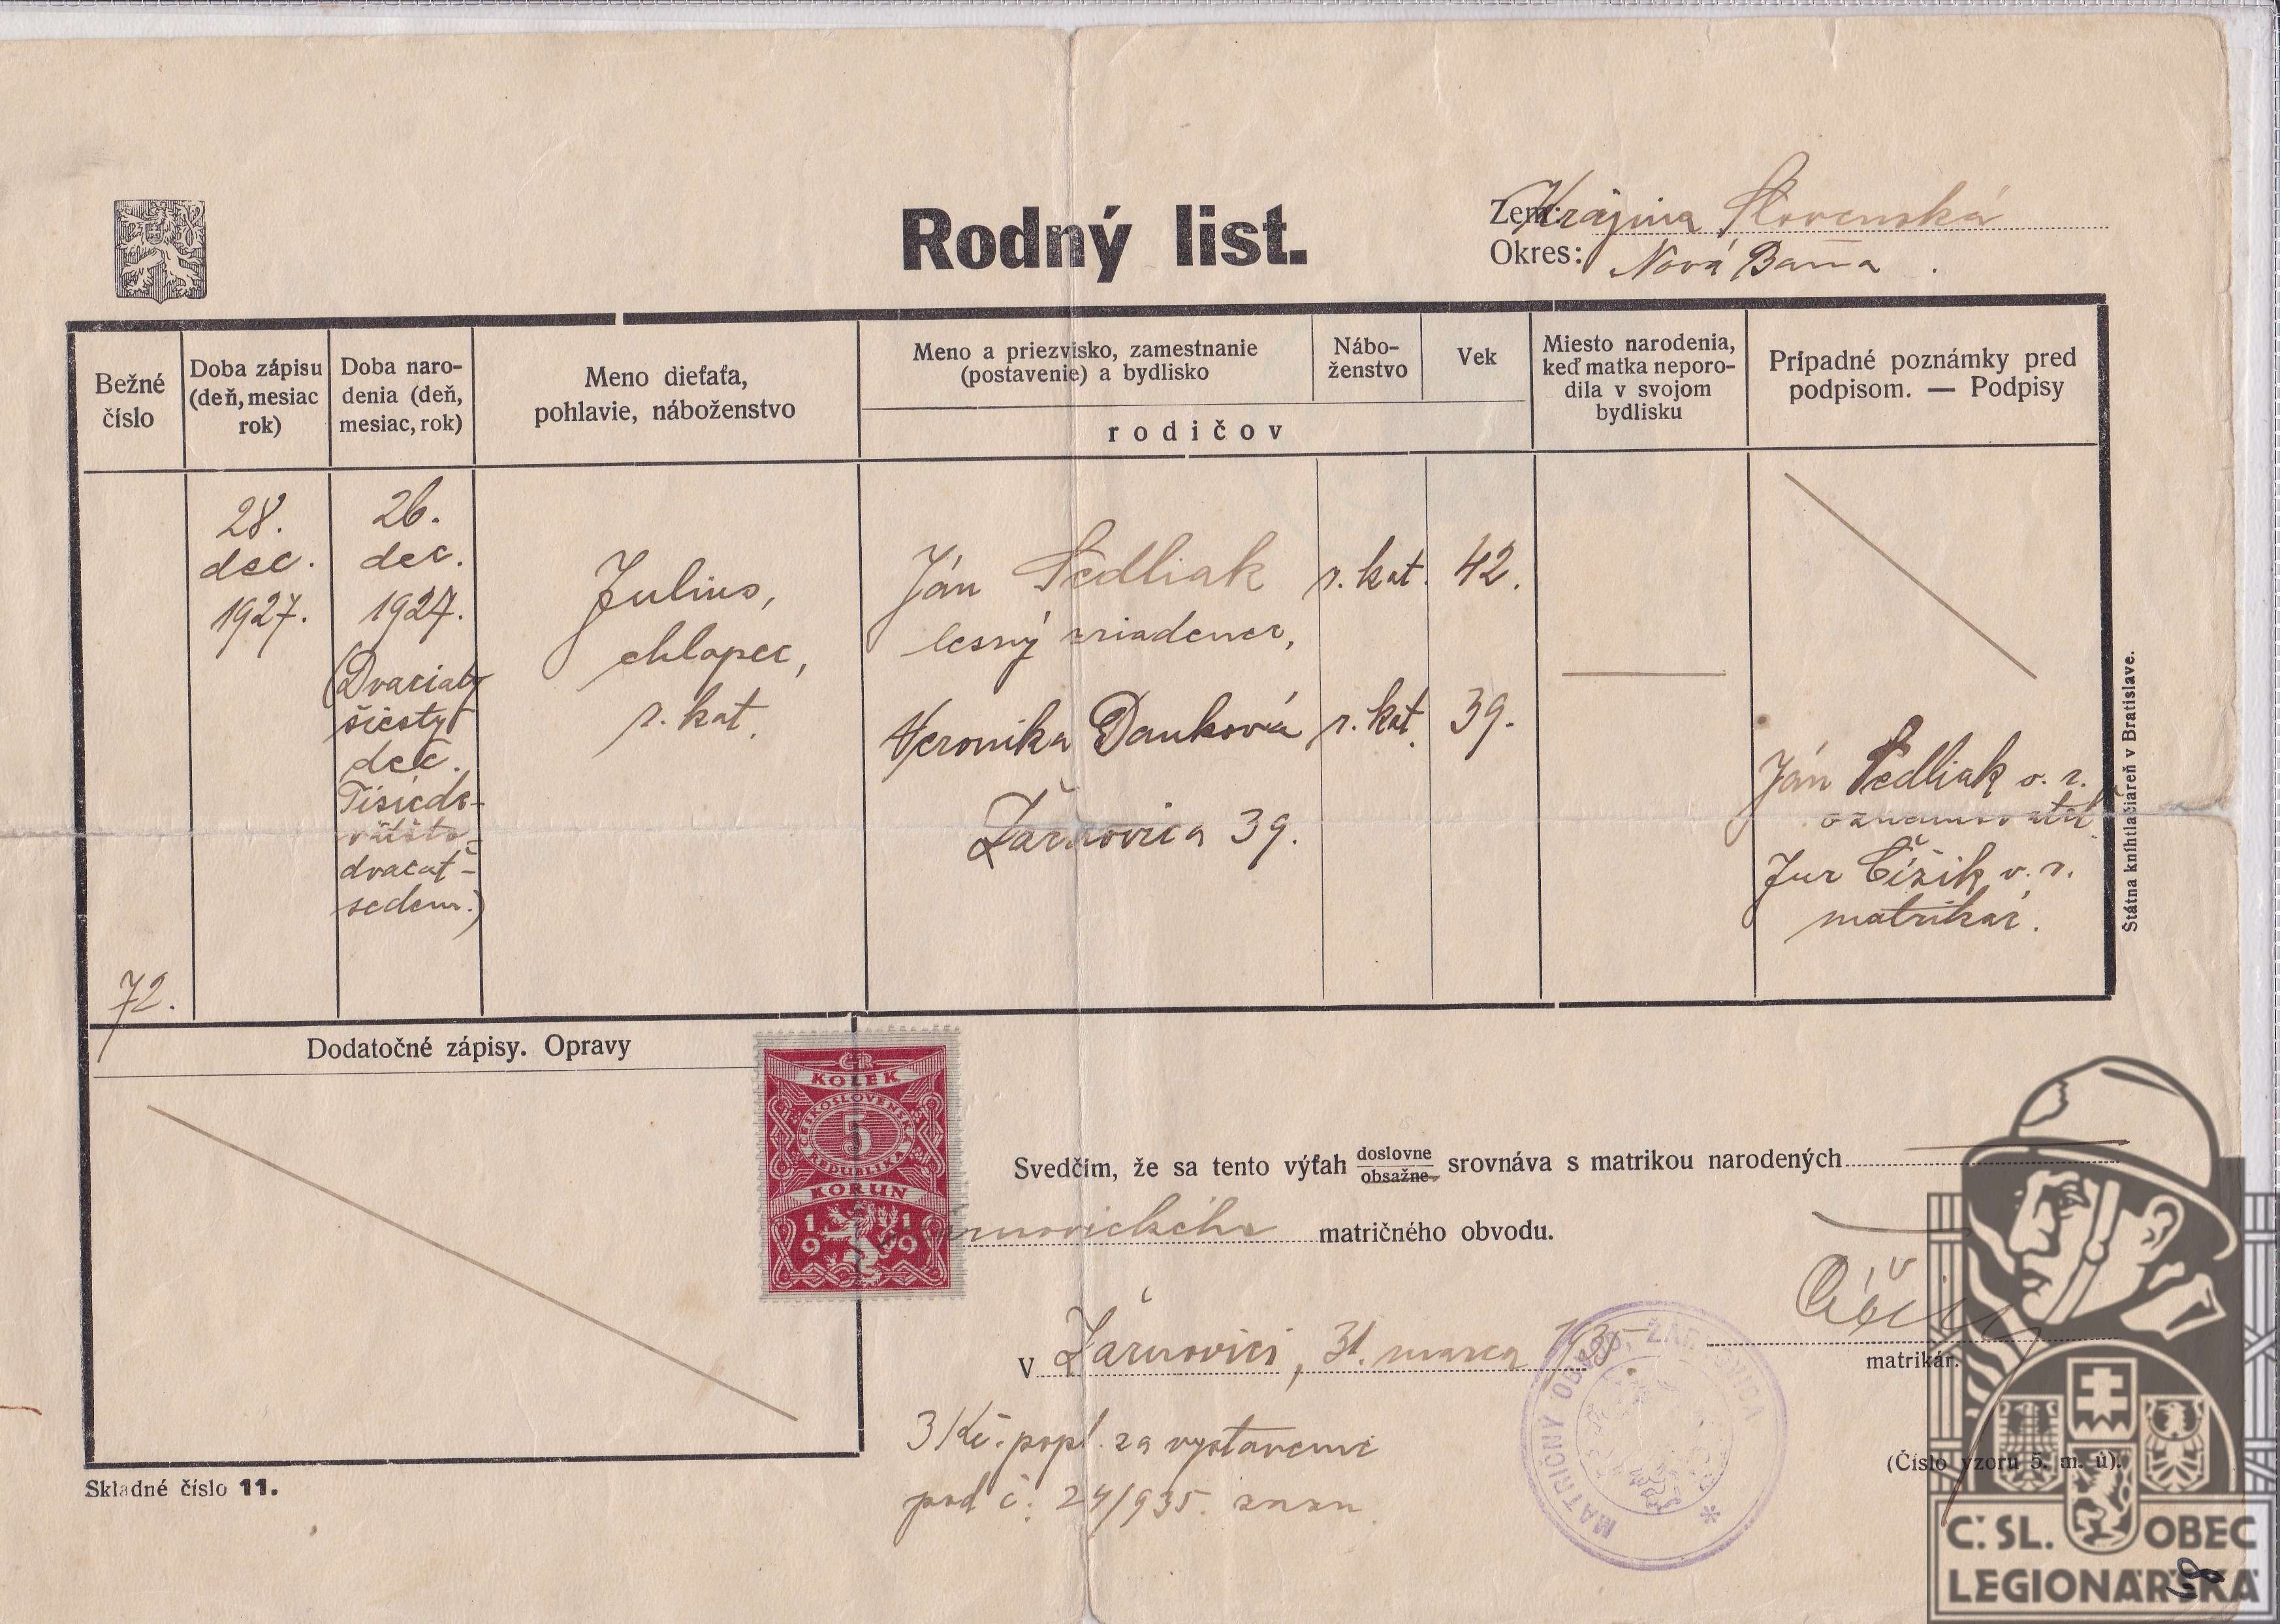 Rodný list.
Zem: Krajina Slovenská
Okres: Nová Baňa
Bežné číslo
Doba zápisu (deň, mesiac rok)
Doba narodenia (deň, mesiac, rok)
Meno dieťaťa, pohlavie, náboženstvo
Meno a priezvisko, zamestnanie (postavenie) a bydlisko
Nábo-
ženstvo
Vek
rodičov
Miesto narodenia,
keď matka neporo-
dila v svojom
bydlisku
Prípadné poznámky pred
podpisom. — Podpisy
72.
28.
dec.
1927.
26.
dec.
1927.
(Dvaciaty
šiesty
dec.
Tisícde-
väťsto-
dvacať-
sedem.)
Julius,
chlapec,
r. kat.
Ján Sedliak r. kat. 42.
lesný zriadenec,
Veronika Danková r. kat. 39.
Žarnovica 39.
Ján Sedliak v. r.
oznamovateľ
Jur Čížik v. r.
matrikár.
Štátna kníhtlačiareň v Bratislave.
Dodatočné zápisy. Opravy
ČR
KOLEK
ČESKOSLOVENSKÁ
5
REPUBLIKA
KORUN
1919
Svedčím, že sa tento výťah doslovne obsažne srovnáva s matrikou narodených
rnovického matričného obvodu.
V Žarnovici, 31. marca 1935.
matrikár.
MATRIČNÝ OBVOD ŽARNOVICA
3 Kč. popl. za vystavenie
pod č. 24/935. zazn.
(Číslo vzoru 5. m. ú).
Skladné číslo 11.
Č. SL. OBEC
LEGIONÁŘSKÁ